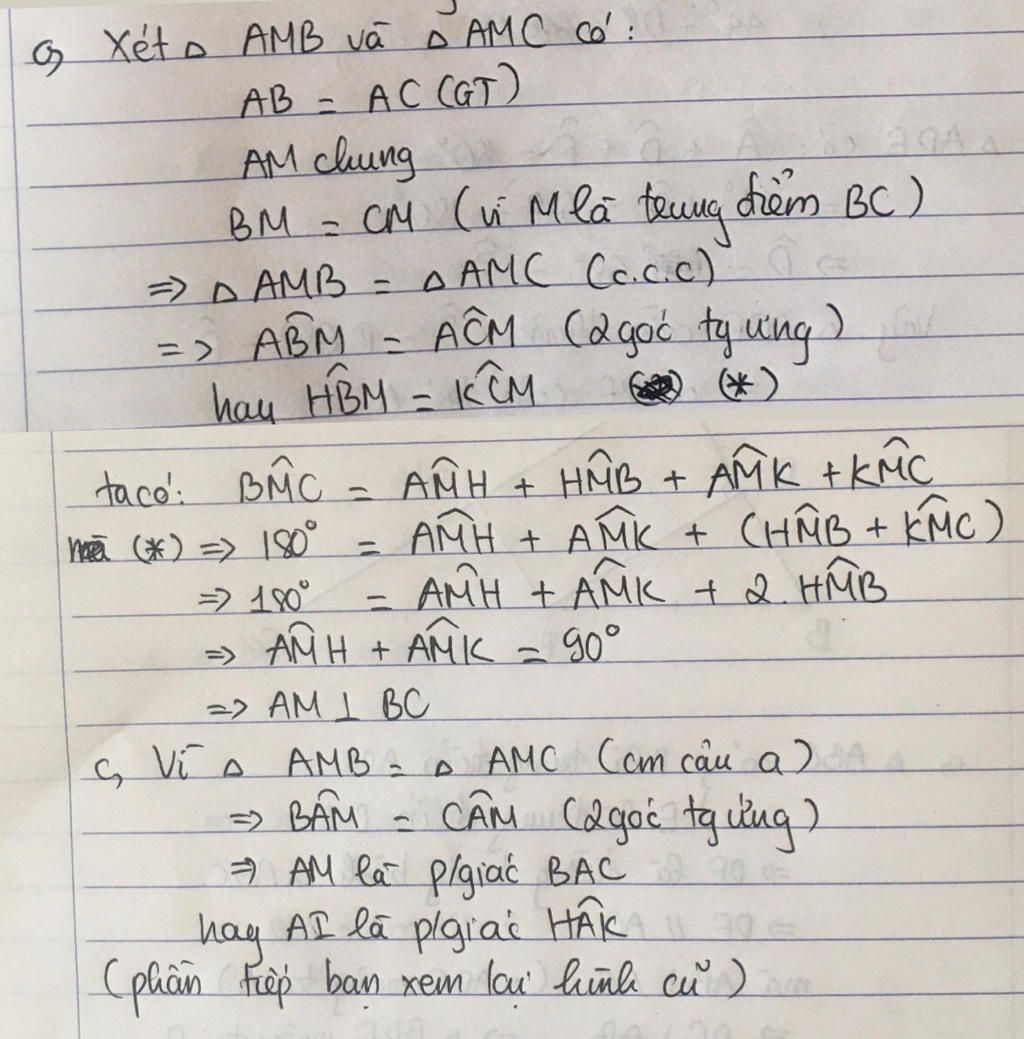 a, Xét △ AMB và △ AMC có:
AB = AC (GT)
AM chung
BM = CM (vì M là trung điểm BC)
=> △ AMB = △ AMC (c.c.c)
=> AB̂M = AĈM (2 góc tg ứng)
hay HB̂M = KĈM (*)
ta có: BM̂C = AM̂H + HM̂B + AM̂K + KM̂C
mà (*) => 180° = AM̂H + AM̂K + (HM̂B + KM̂C)
=> 180° = AM̂H + AM̂K + 2. HM̂B
=> AM̂H + AM̂K = 90°
=> AM ⊥ BC
c, Vì △ AMB = △ AMC (cm câu a)
=> BÂM = CÂM (2 góc tg ứng)
=> AM là p/giác BAC
hay AI là p/giác HÂK
(phần tiếp bạn xem lại hình cũ)